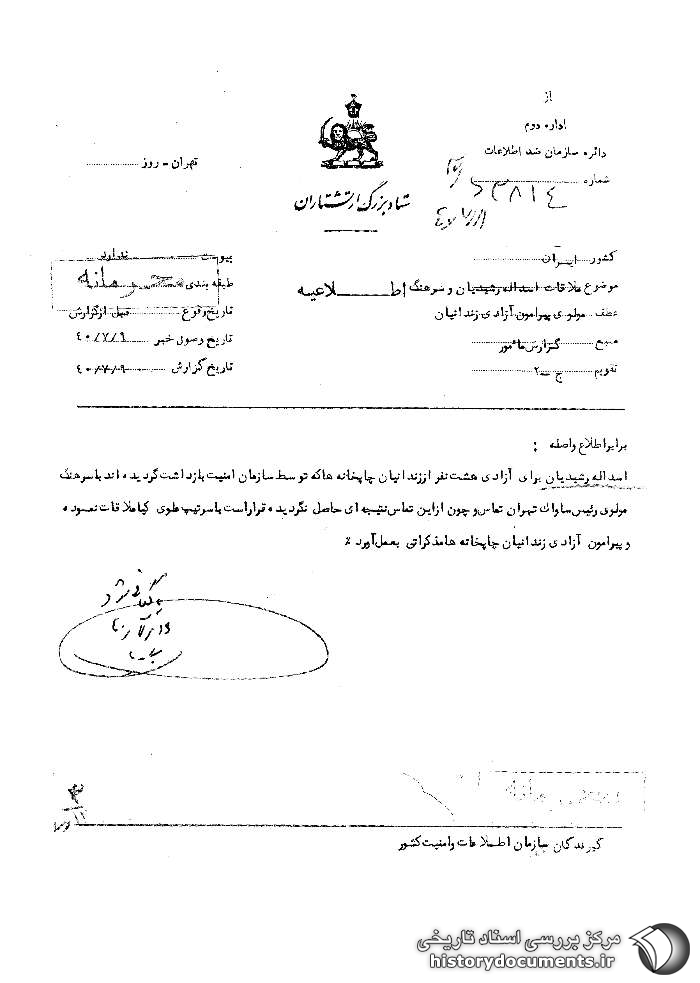 از
اداره دوم
دائره سازمان ضد اطلاعات
شماره ۵۳۸۱٤
تهران - روز
ستاد بزرگ ارتشتاران
کشور ایران
موضوع ملاقات اسداله رشیدیان و سرهنگ
اطلاعیه
عطف مولوی پیرامون آزادی زندانیان
منبع گزارش مأمور
تقویم ج - ۲
پیوست ندارد
طبقه بندی محرمانه
تاریخ وقوع قبل از گزارش
تاریخ وصول خبر ٤۰/۷/۹
تاریخ گزارش ٤۰/۷/۹
برابر اطلاع واصله :
اسداله رشیدیان برای آزادی هشت نفر از زندانیان چاپخانه ها که توسط سازمان امنیت بازداشت گردیده اند با سرهنگ
مولوی رئیس ساواک تهران تماس و چون از این تماس نتیجه ای حاصل نگردیده قرار است با سرتیپ علوی کیا ملاقات نموده
و پیرامون آزادی زندانیان چاپخانه ها مذکراتی بعمل آورد ٪
بایگانی شود
محرمانه
گیرندگان سازمان اطلاعات و امنیت کشور
مرکز بررسی اسناد تاریخی
historydocuments.ir